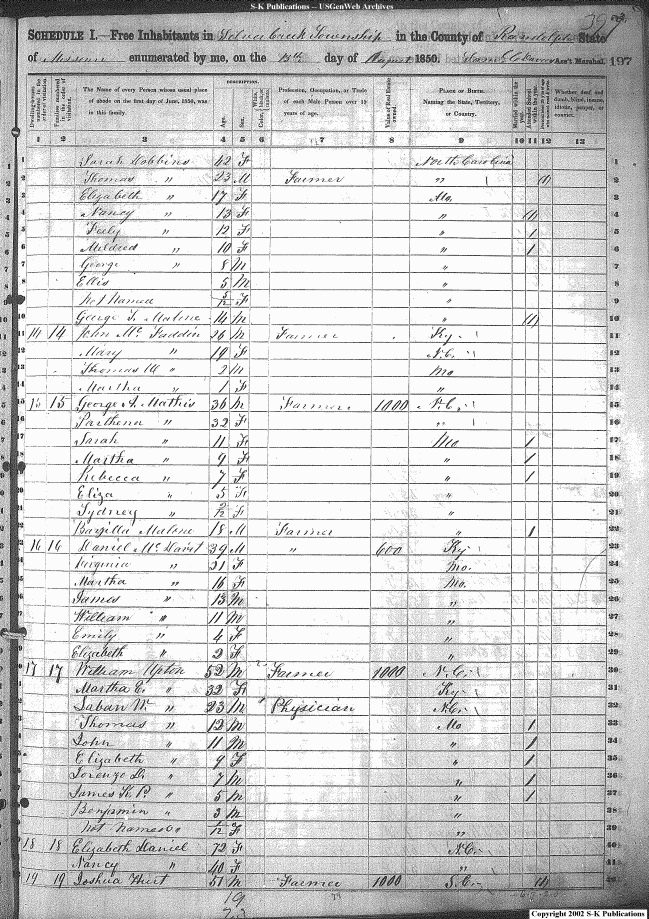 S-K Publications -- USGenWeb Archives
SCHEDULE I.--Free Inhabitants in Silver Creek Township in the County of Randolph State
of Missouri enumerated by me, on the 13th day of August 1850. Ass't Marshal. 197
Dwelling-houses numbered in the order of visitation.
Families numbered in the order of visitation.
The Name of every Person whose usual place of abode on the first day of June, 1850, was in this family.
DESCRIPTION.
Age.
Sex.
Color
Profession, Occupation, or Trade of each Male Person over 15 years of age.
Value of Real Estate owned.
PLACE OF BIRTH. Naming the State, Territory, or Country.
Married within the year.
Attended School within the year.
Whether deaf and dumb, blind, insane, idiotic, pauper, or convict.
1 2 3 4 5 6 7 8 9 10 11 12 13
1 Sarah Dobbins 42 F North Carolina 1
2 Thomas " 23 M Farmer " (1) 2
3 Elizabeth " 17 F Mo. 3
4 Nancy " 13 F " (1) 4
5 " 12 F " 1 5
6 Mildred " 10 F " 1 6
7 George " 8 M " 7
8 Ellis 5 M " 8
9 Not Named 5/12 F " 9
10 George T. Malone 14 M " (1) 10
11 14 14 John McFaddin 26 M Farmer Ky. 11
12 Mary " 19 F N.C. 12
13 Thomas W " 2 M Mo 13
14 Martha " 1 F " 14
15 15 15 George A. Mathis 36 M Farmer 1000 N.C. 15
16 Parthena " 32 F " 16
17 Sarah " 11 F Mo 1 17
18 Martha " 9 F " 1 18
19 Rebecca " 7 F " 1 19
20 Eliza " 5 F " 20
21 Sydney " 2/12 F " 21
22 Malone 18 M Farmer " 1 22
23 16 16 Daniel 39 M " 600 Ky. 23
24 Virginia " 21 F Mo. 24
25 Martha " 16 F Mo. 25
26 James " 13 M " 26
27 William " 11 M " 27
28 Emily " 4 F " 28
29 Elizabeth " 2 F " 29
30 17 17 William Upton 52 M Farmer 1000 N.C. 30
31 Martha E. " 32 F Ky. 31
32 Laban W. " 23 M Physician N.C. 32
33 Thomas " 12 M Mo 1 33
34 John " 11 M " 1 34
35 Elizabeth " 9 F " 1 35
36 Lorenzo D. " 7 M " 1 36
37 James K.P. " 5 M " 1 37
38 Benjamin " 3 M " 38
39 Not Named 1/12 F " 39
40 18 18 Elizabeth Daniel 72 F N.C. 40
41 Nancy " 40 F " 41
42 19 19 Joshua Hurt 51 M Farmer 1000 S.C. (1) 42
19
23
Copyright 2002 S-K Publications